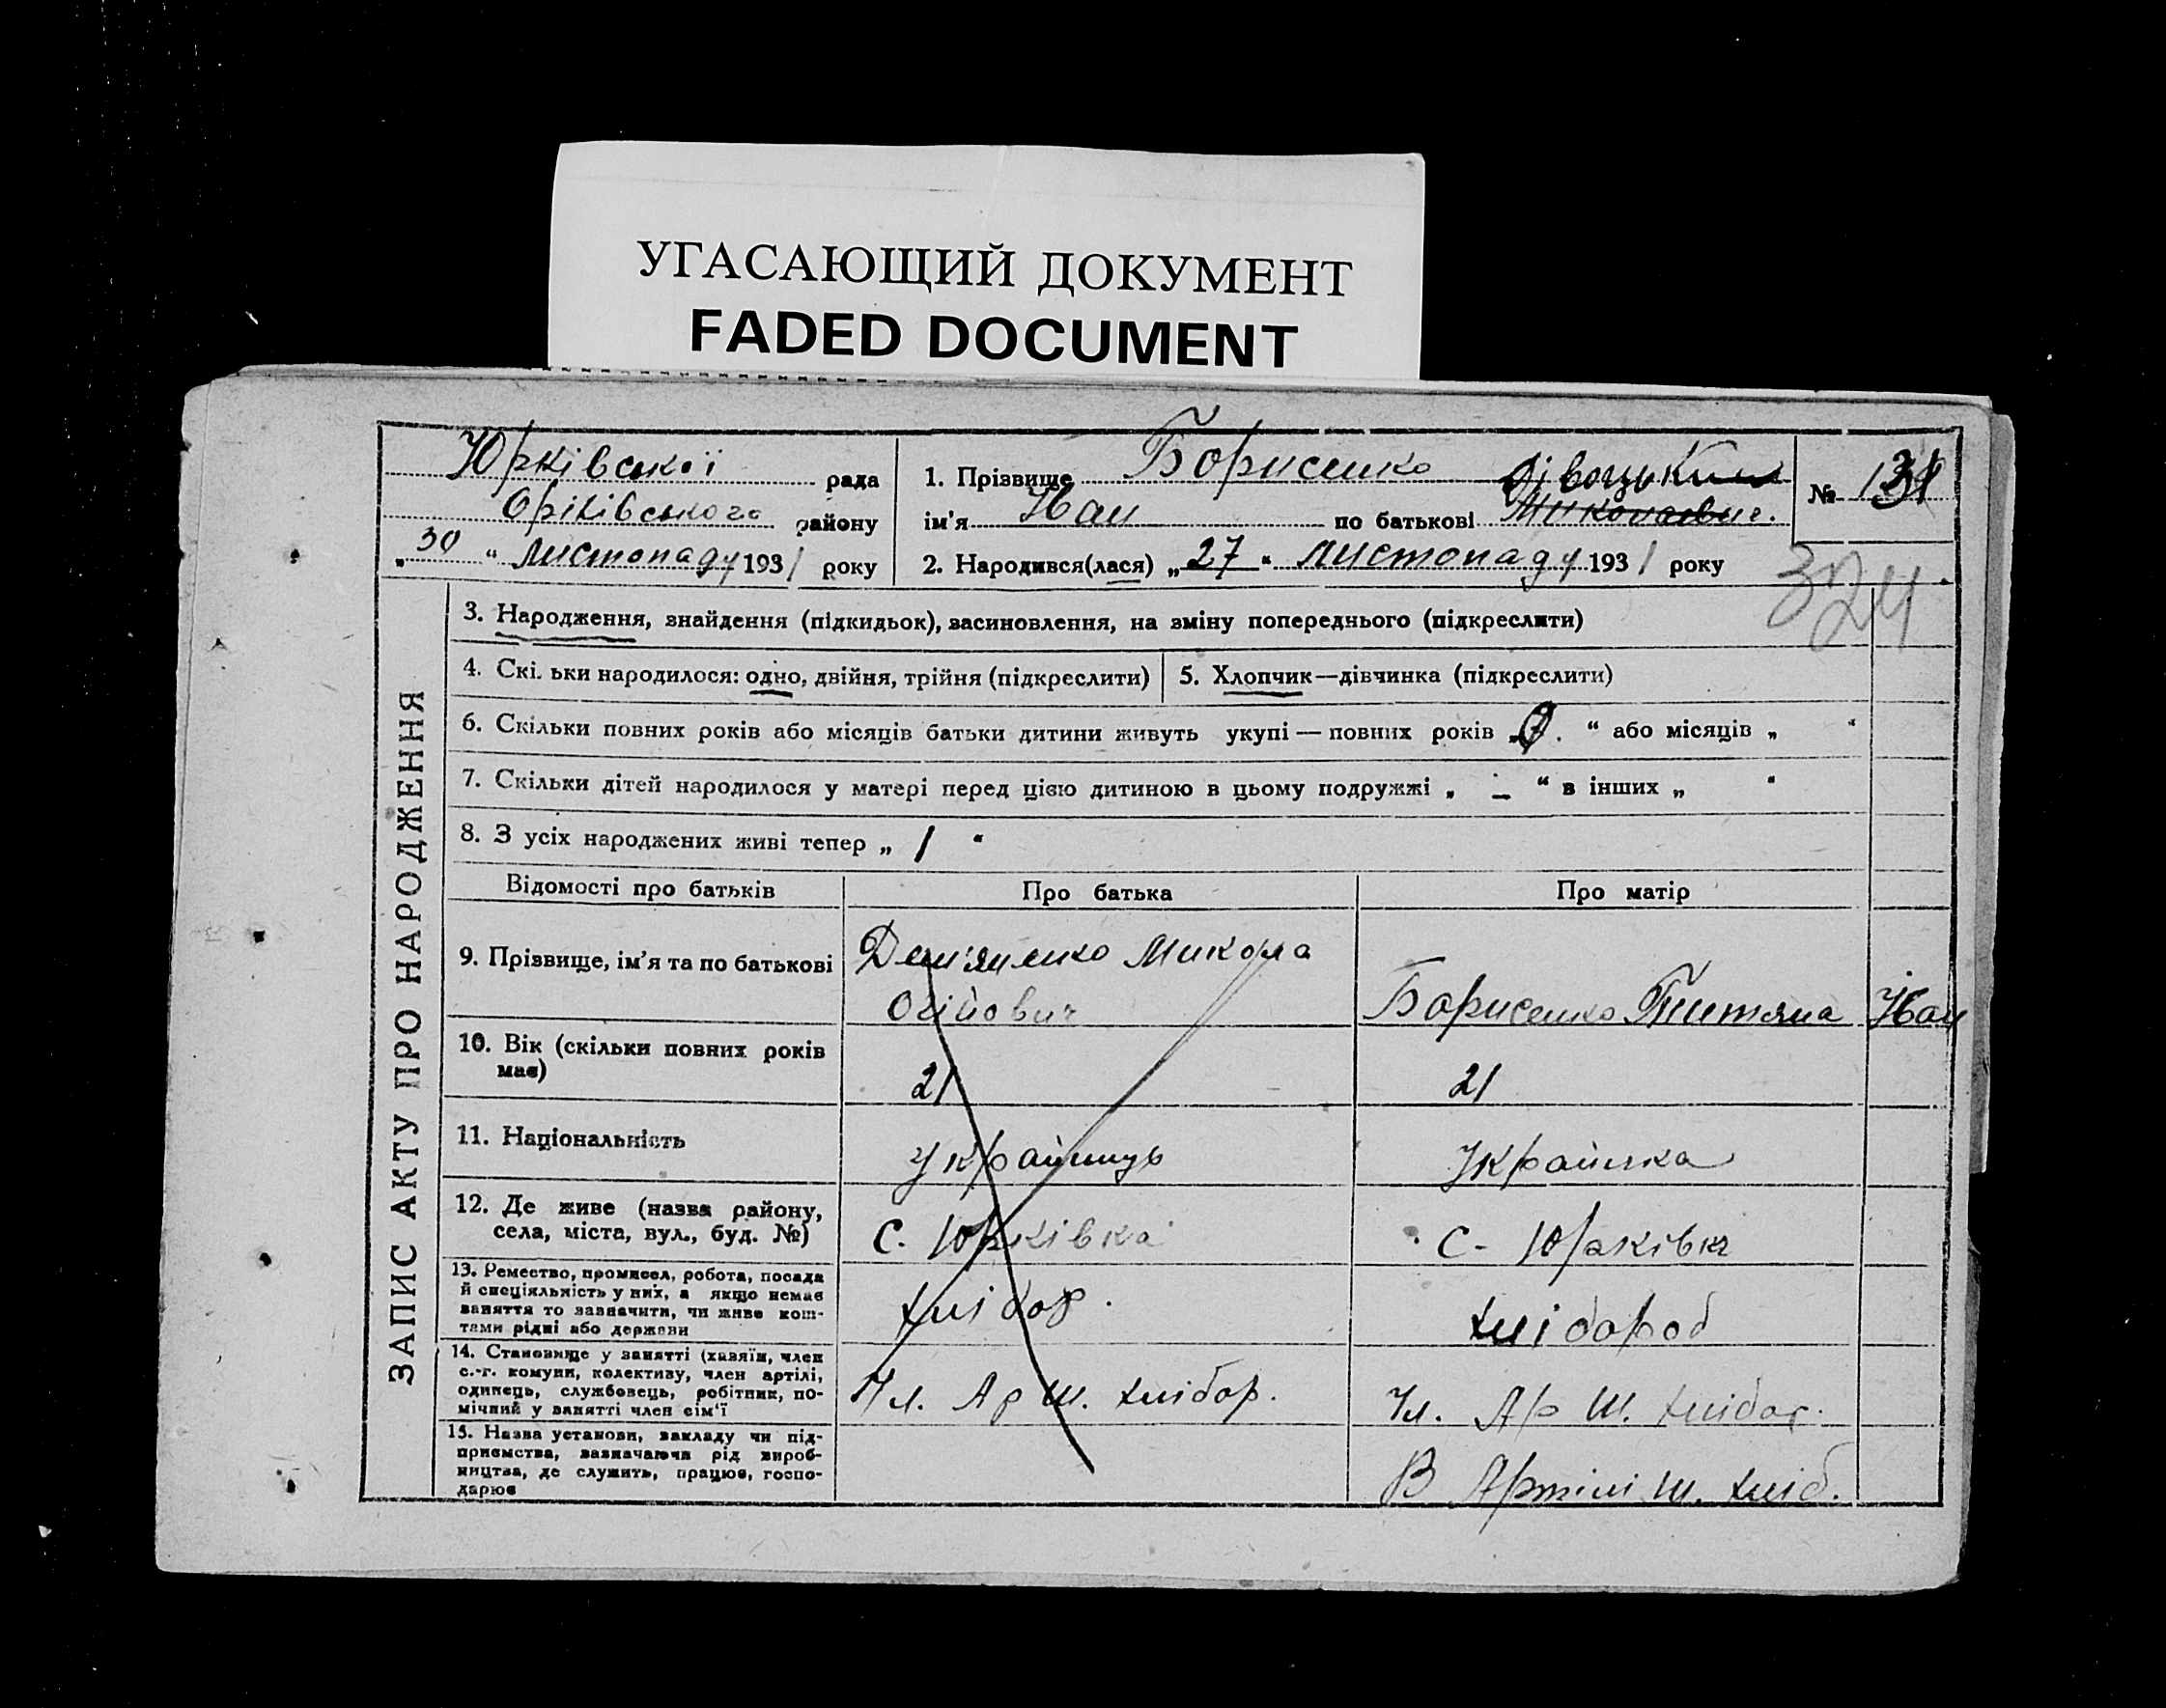 УГАСАЮЩИЙ ДОКУМЕНТ
FADED DOCUMENT
Юрківської рада
Оріхівського району
„30“ листопаду 1931 року
1. Прізвище Борисенко
ім'я Іван по батькові Миколаевич.
2. Народився(лася) „27“ листопаду 1931 року
№ 131
324
ЗАПИС АКТУ ПРО НАРОДЖЕННЯ
3. Народження, знайдення (підкидьок), засиновлення, на зміну попереднього (підкреслити)
4. Скі. ьки народилося: одно, двійня, трійня (підкреслити)
5. Хлопчик—дівчинка (підкреслити)
6. Скільки повних років або місяців батьки дитини живуть укупі — повних років „ “ або місяців „ “
7. Скільки дітей народилося у матері перед цією дитиною в цьому подружжі „ — “ в інших „ “
8. З усіх народжених живі тепер „ 1 “
Відомості про батьків
Про батька
Про матір
9. Прізвище, ім'я та по батькові
Дем'яненко Микола
Борисенко Титяна
Іван
10. Вік (скільки повних років
має)
21
21
11. Національність
Українець
Українка
12. Де живе (назва району,
села, міста, вул., буд. №)
с. Юрківка
с- Юрківка
13. Ремество, промисел, робота, посада
й спеціяльність у них, а якщо немає
заняття то зазначити, чи живе кош-
тами рідні або держави
хлібор.
хлібороб
14. Становище у занятті (хазяїн, член
с.-г. комуни, колективу, член артілі,
одинець, службовець, робітник, по-
мічний у занятті член сім'ї
Чл. Ар Ш. хлібор.
Чл. Ар Ш. хлібор.
15. Назва установи, закладу чи під-
приємства, зазначаючи рід вироб-
ництва, де служить, працює, госпо-
дарює
В Артілі Ш. хліб.